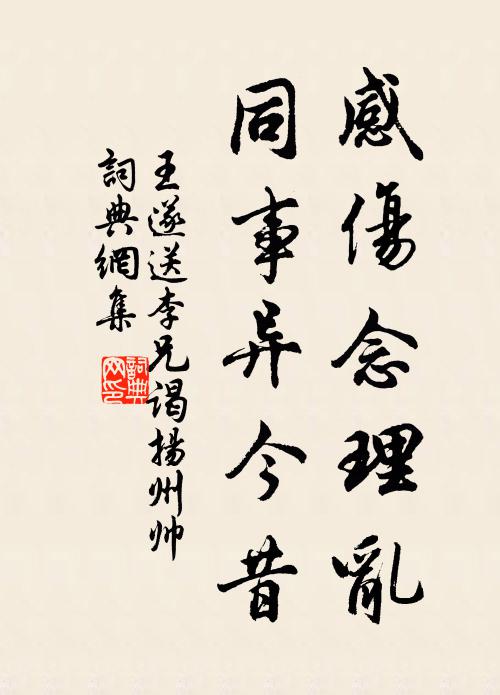 感傷念理亂
同事异今昔
王遂送李兄謁揚州帅
詞典網集
詞典网印